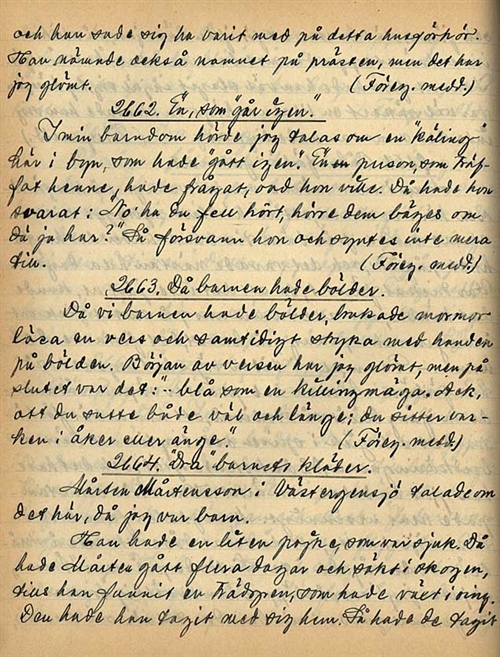 och han sade sig ha varit med på detta husförhör.
Han nämnde också namnet på prästen, men det har
jag glömt. (Föreg. medd.)
2662. En, som "går igen."
I min barndom hörde jag talas om en "käling"
här i byn, som hade "gått igen". En en person, som träf-
fat henne, hade frågat, vad hon ville. Då hade hon
svarat: "No: ha du fell hört, hörre dem bäges om
då ja har?" Så försvann hon och syntes inte mera
till. (Föreg. medd.)
2663. Då barnen hade bölder.
Då vi barnen hade bölder, brukade mormor
läsa en vers och samtidigt stryka med handen
på bölden. Början av versen har jag glömt, men på
slutet var det: "- blå som en killingmäga. Ack,
att du sutte både väl och länge; du sitter var-
ken i åker eller änge." (Föreg. medd.)
2664. "Dra" barnets kläder.
Mårten Mårtensson i Västergensjö talade om
det här, då jag var barn.
Han hade en liten pojke, som var sjuk. Då
hade Mårten gått flera dagar och sökt i skogen,
tills han funnit en trädgren, som hade växt i ring.
Den hade han tagit med sig hem. Så hade de tagit